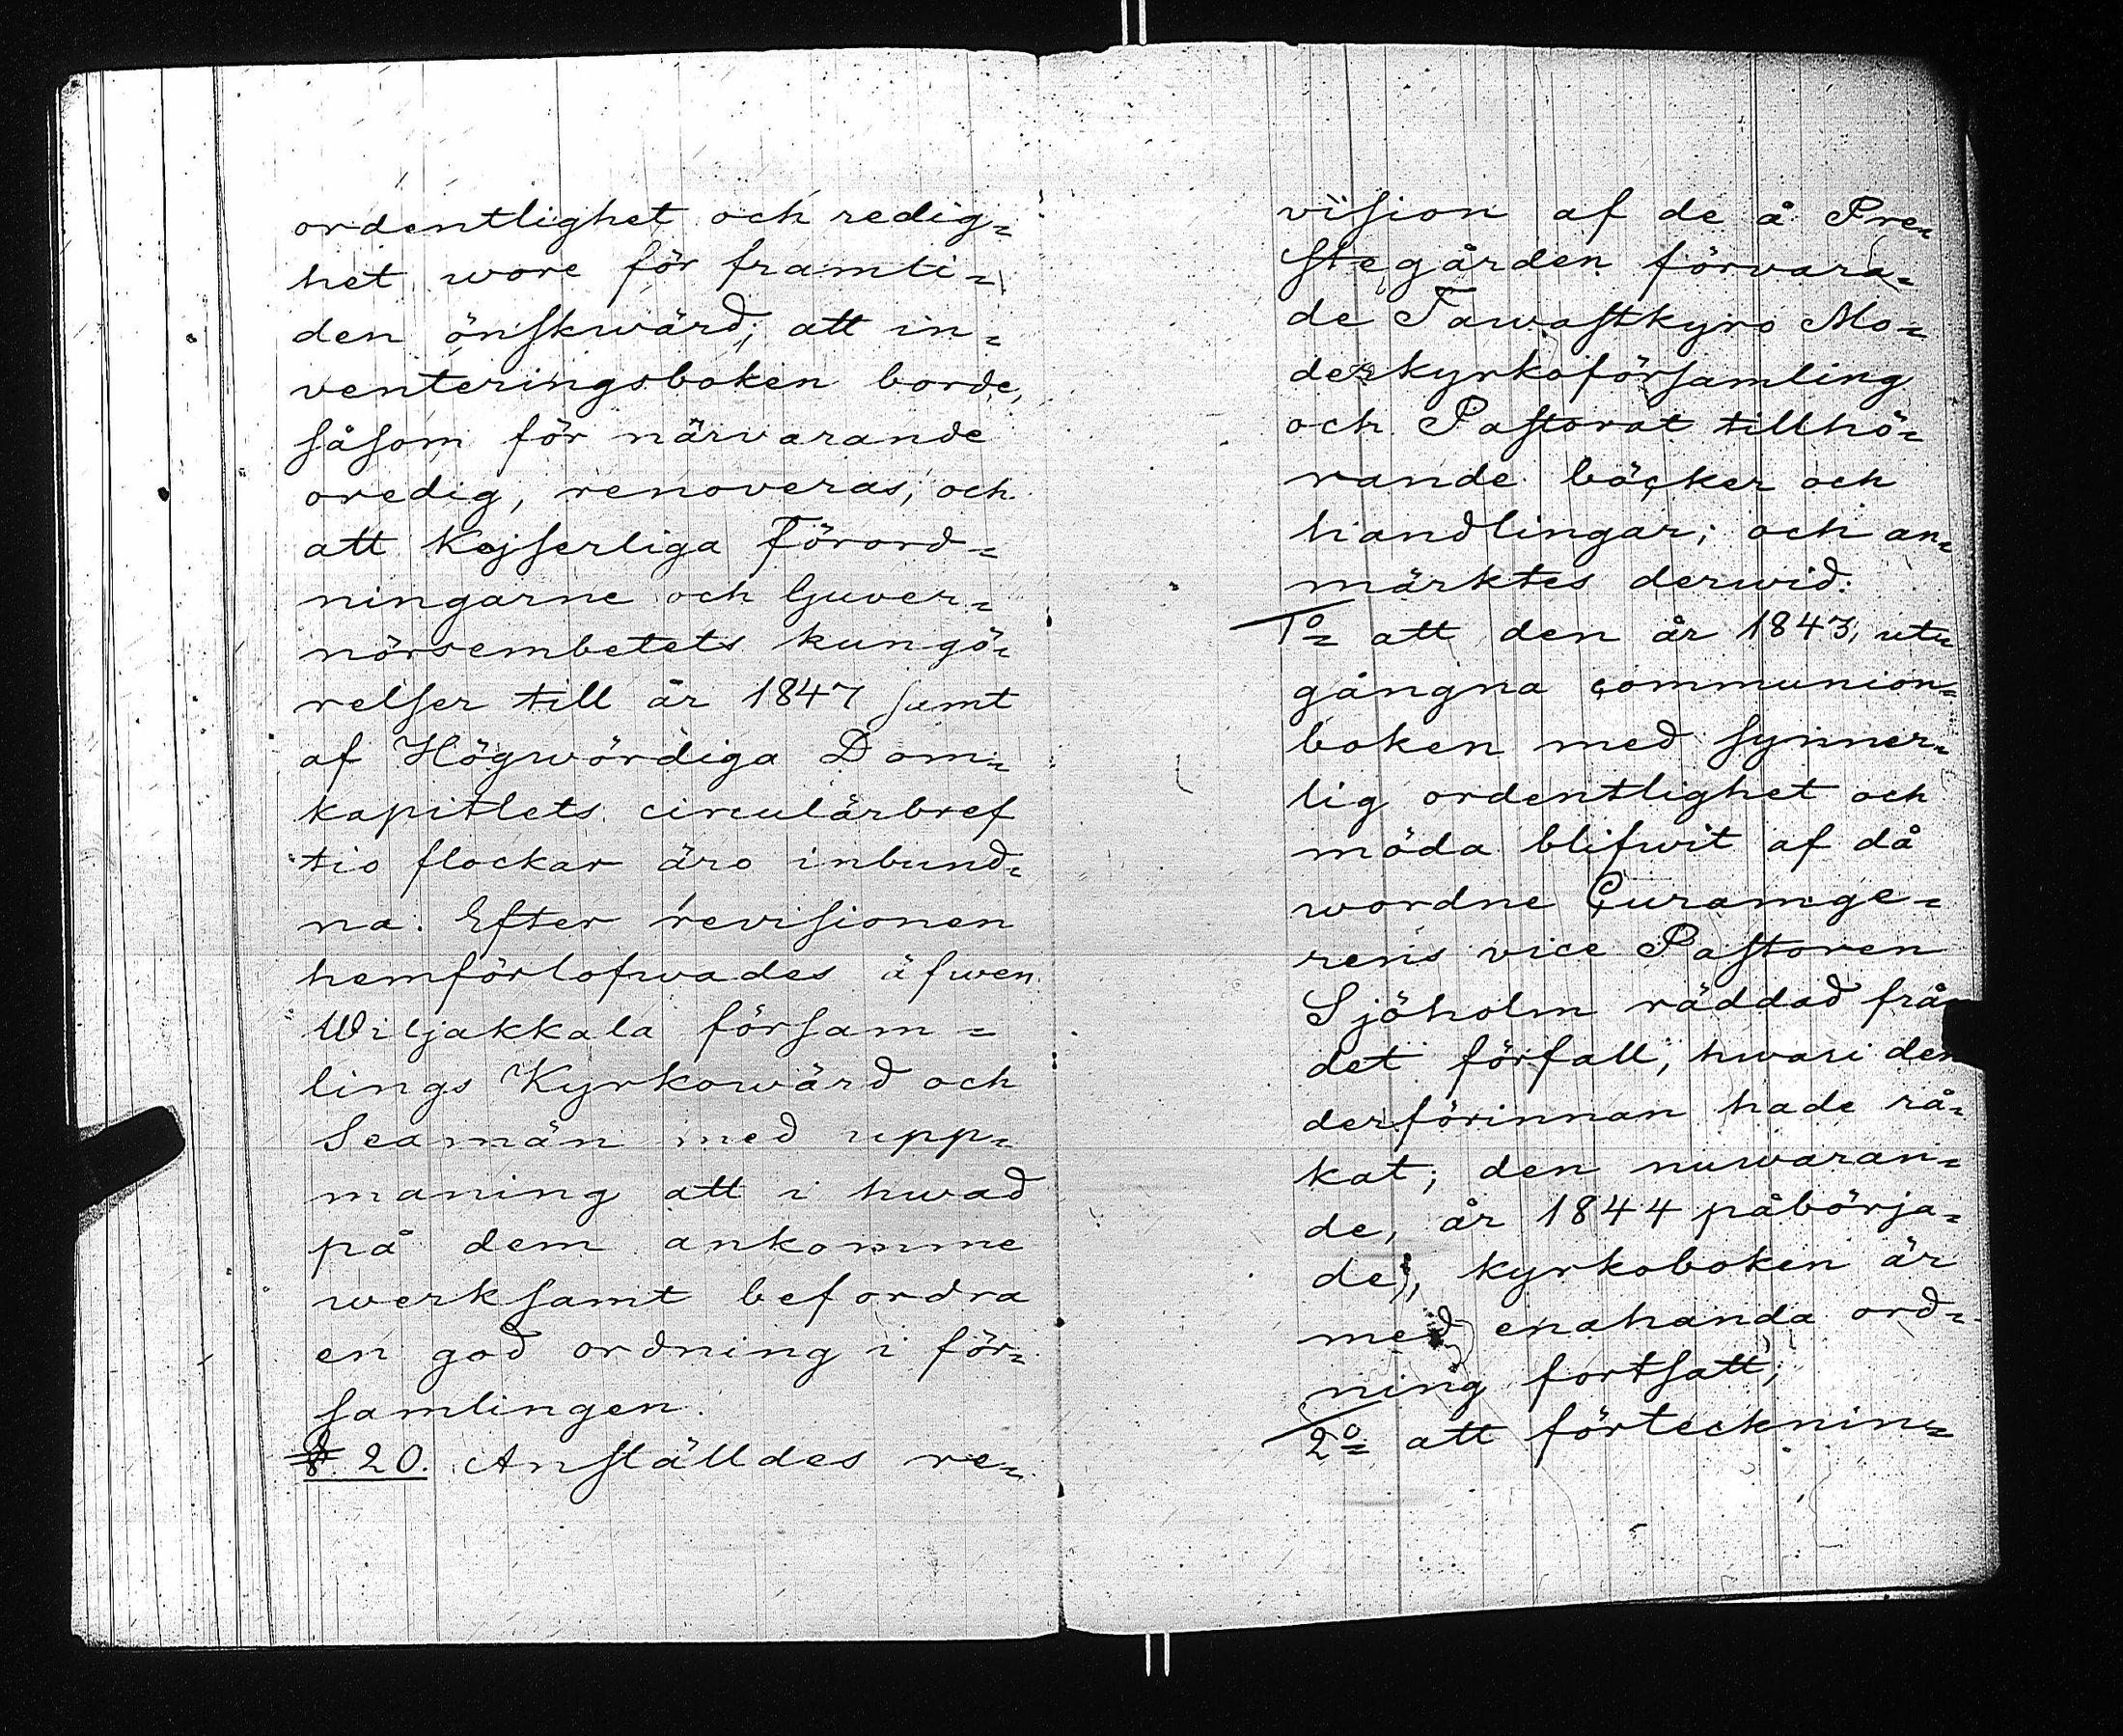 ordentlighet och redig=
het wore för framti=
den önskwärd; att in=
venteringsboken borde,
såsom för närvarande
oredig, renoveras, och
att Kejserliga Förord=
ningarne och Guver=
nörsembetets kungö=
relser till år 1847 samt
af Högwördiga Dom=
kapitlets circulärbref
tio flockar äro inbund=
na. Efter revisionen
hemförlofwades äfwen
Wiljakkala försam=
lings Kyrkowärd och
Sexmän med upp=
maning att i hwad
på dem ankomme
werksamt befordra
en god ordning i för=
samlingen.
§ 20. Anställdes re=
vision af de å Pre=
stegården förvara=
de Tawastkyro Mo=
derkyrkoförsamling
och Pastorat tillhö=
rande böcker och
handlingar; och an=
märktes derwid:
1o= att den år 1843, ut=
gångna communion=
boken med synner=
lig ordentlighet och
möda blifwit af då
wordne Curamge=
rens vice Pastoren
Sjöholm räddad från
det förfall, hwari den
derförinnan hade rå=
kat; den nuwaran=
de, år 1844 påbörja=
de, kyrkoboken är
med enahanda ord=
ning fortsatt;
2o= att förtecknin=